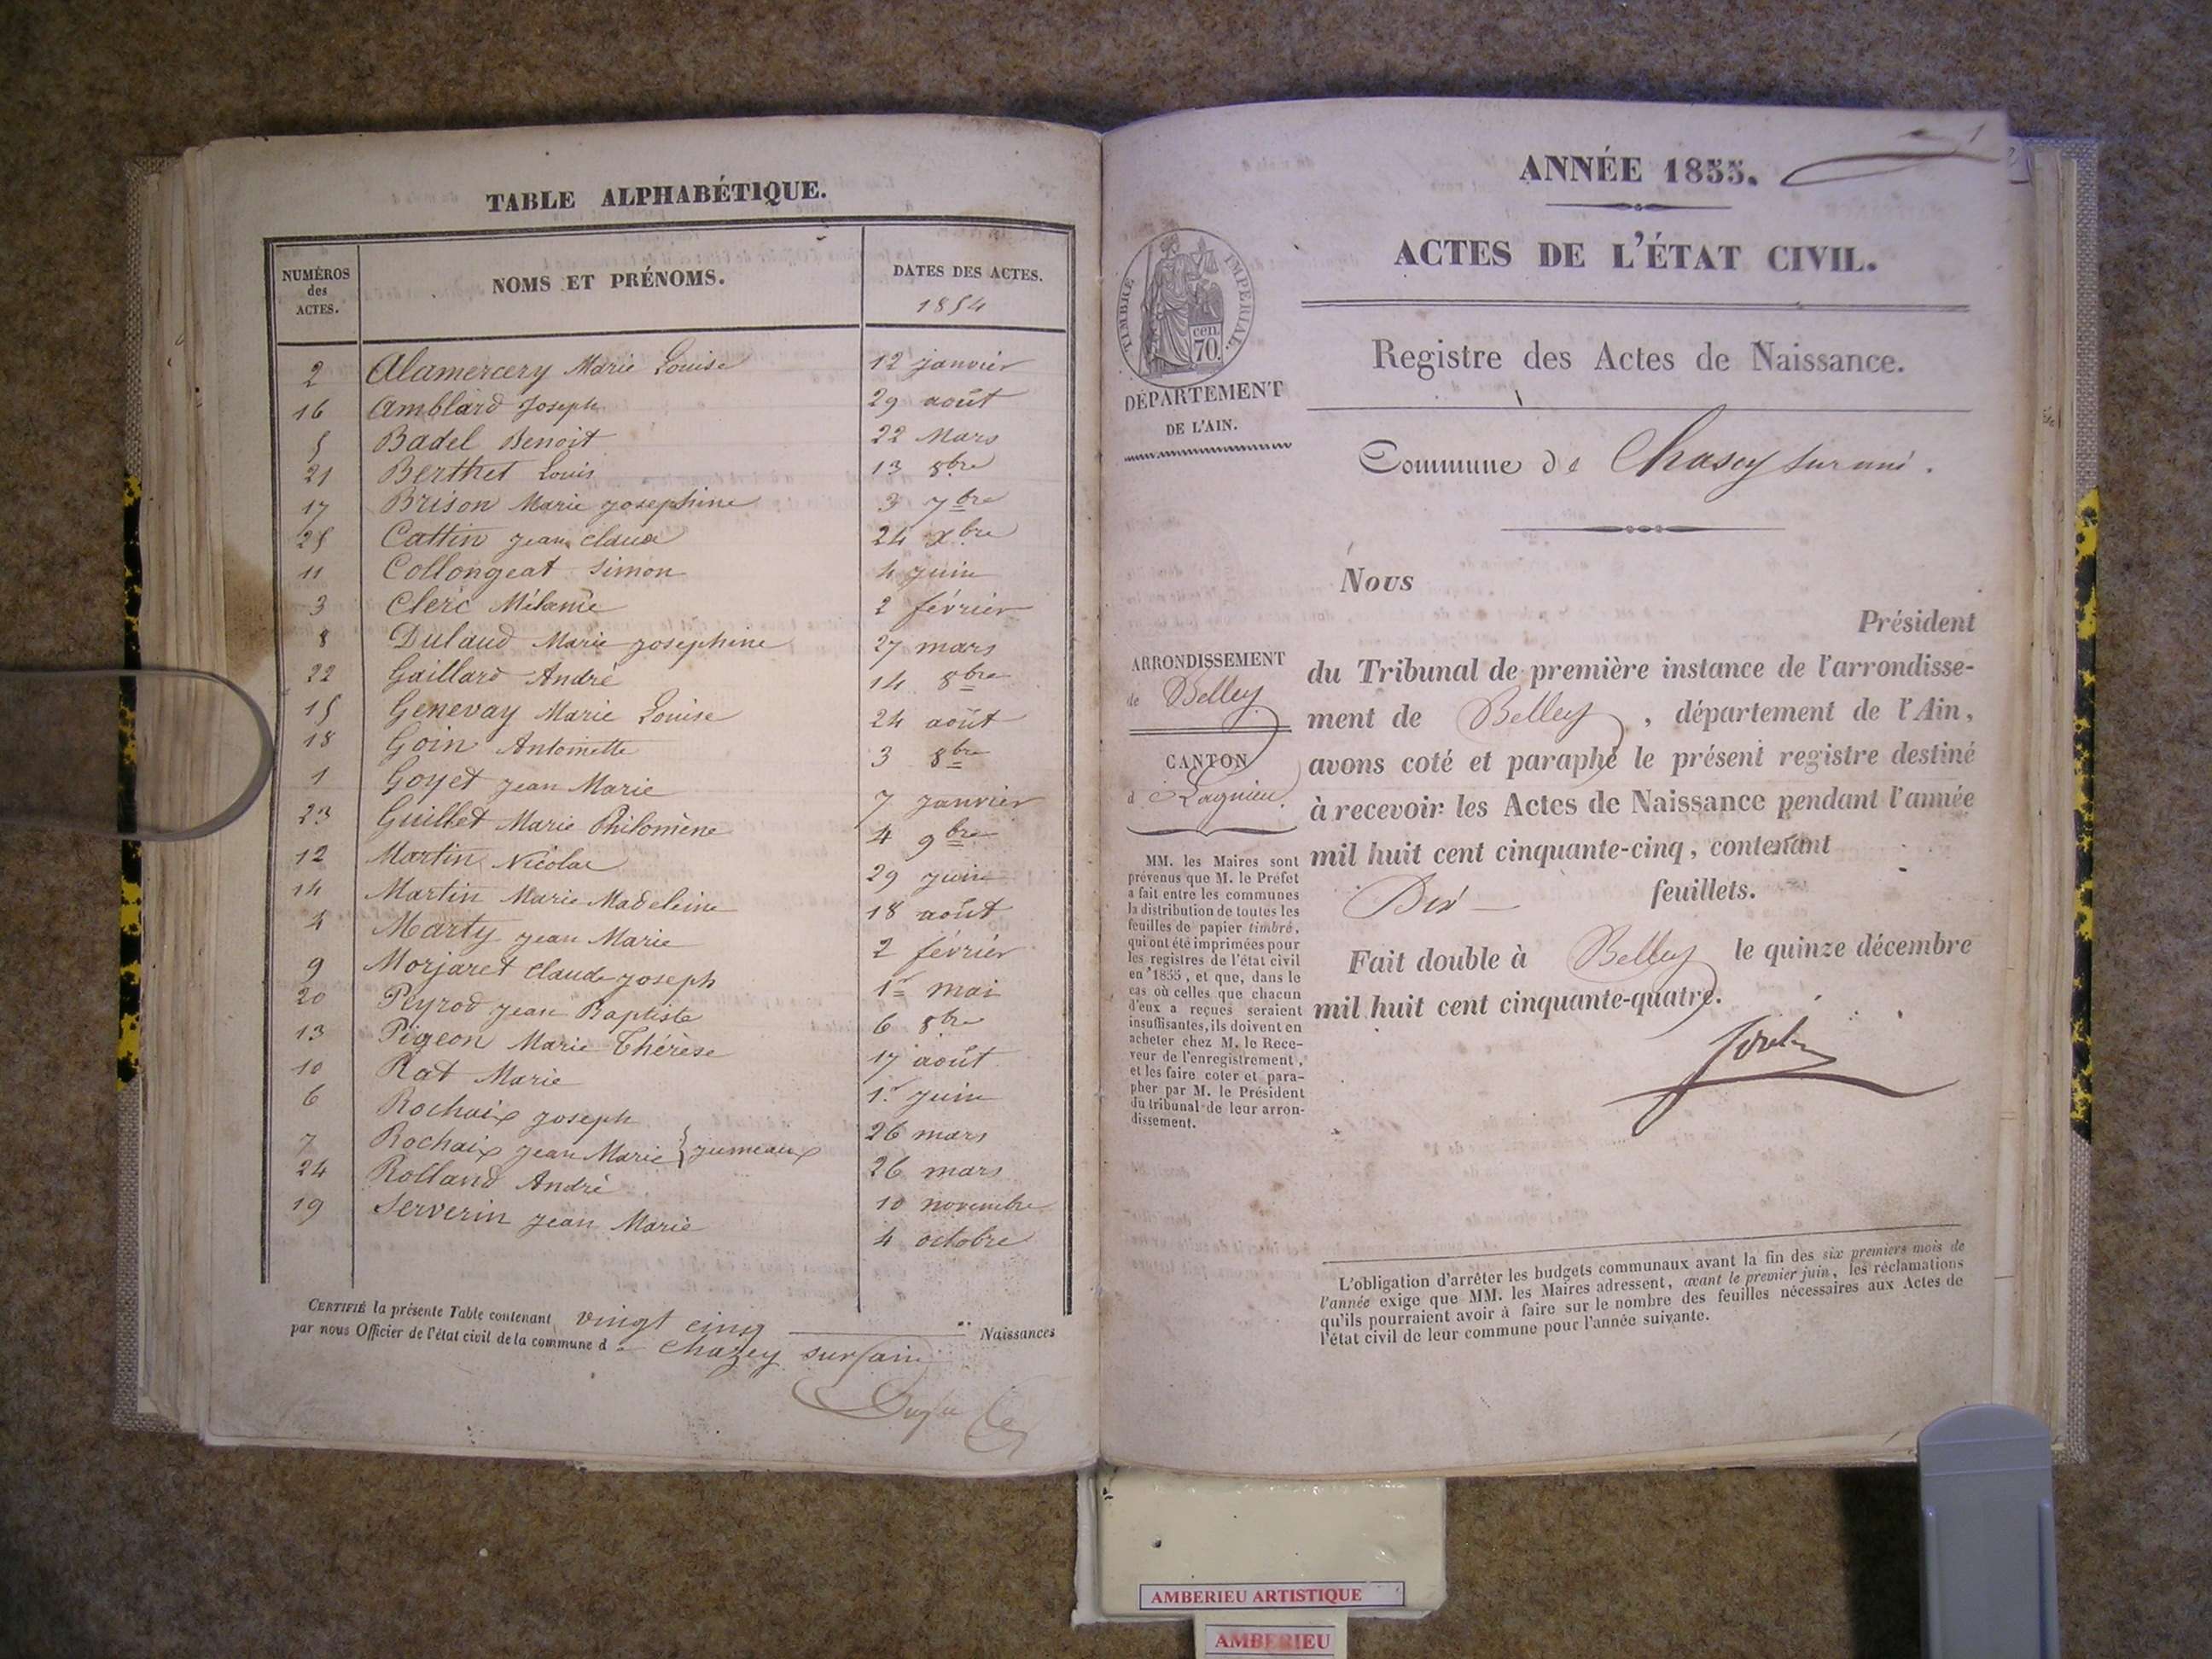 TABLE ALPHABÉTIQUE.
NUMÉROS des ACTES.
NOMS ET PRÉNOMS.
DATES DES ACTES.
1854
2 Alamercery Marie Louise 12 janvier
16 Amblard Joseph 29 août
5 Badel Benoit 22 Mars
21 Berthet Louis 13 8bre
17 Brison Marie josephine 3 7bre
25 Cattin jean claude 24 xbre
11 Collongeat Simon 4 juin
3 Clerc Mélanie 2 février
8 Dulaud Marie josephine 27 mars
22 Gaillard André 14 8bre
15 Genevay Marie Louise 24 août
18 Goin Antoinette 3 8bre
1 Goyet jean Marie 7 janvier
23 Guillet Marie Philomène 4 9bre
12 Martin Nicolas 29 juin
14 Martin Marie Madeleine 18 août
4 Marty jean Marie 2 février
9 Morjaret claude joseph 1r mai
20 Peyrod jean Baptiste 6 8bre
13 Pigeon Marie Thérese 17 août
10 Rat Marie 1r juin
6 Rochaix joseph 26 mars
7 Rochaix jean Marie } jumeaux 26 mars
24 Rolland André 10 novembre
19 Serverin jean Marie 4 octobre
CERTIFIÉ la présente Table contenant vingt cinq Naissances
par nous Officier de l'état civil de la commune de chazey sur ain
ANNÉE 1855.
1
ACTES DE L'ÉTAT CIVIL.
TIMBRE IMPÉRIAL.
cen.
70.
DÉPARTEMENT
DE L'AIN.
Registre des Actes de Naissance.
Commune de Chasey sur ain.
Nous
Président
du Tribunal de première instance de l'arrondisse-
ment de Belley, département de l'Ain,
avons coté et paraphé le présent registre destiné
à recevoir les Actes de Naissance pendant l'année
mil huit cent cinquante-cinq, contenant
Dix feuillets.
Fait double à Belley le quinze décembre
mil huit cent cinquante-quatre.
ARRONDISSEMENT
de Belley
CANTON
d Lagnieu.
MM. les Maires sont
prévenus que M. le Préfet
a fait entre les communes
la distribution de toutes les
feuilles de papier timbré,
qui ont été imprimées pour
les registres de l'état civil
en 1855, et que, dans le
cas où celles que chacun
d'eux a reçues seraient
insuffisantes, ils doivent en
acheter chez M. le Rece-
veur de l'enregistrement,
et les faire coter et para-
pher par M. le Président
du tribunal de leur arron-
dissement.
L'obligation d'arrêter les budgets communaux avant la fin des six premiers mois de
l'année exige que MM. les Maires adressent, avant le premier juin, les réclamations
qu'ils pourraient avoir à faire sur le nombre des feuilles nécessaires aux Actes de
l'état civil de leur commune pour l'année suivante.
AMBERIEU ARTISTIQUE
AMBERIEU